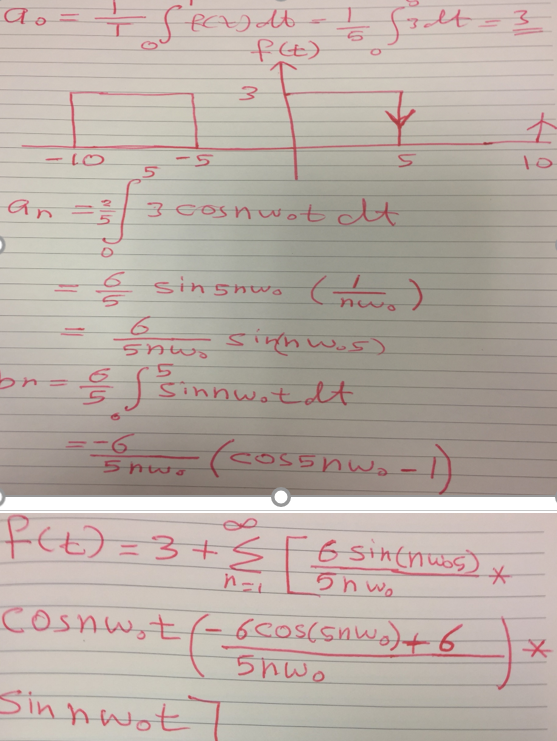 a₀ = 1/T ∫₀ f(t) dt = 1/5 ∫₀⁵ 3 dt = 3
f(t)
3
-10 -5 5 10
an = 2/5 ∫₀⁵ 3 cosnw₀t dt
= 6/5 sin5nw₀ (1/nw₀)
= 6/5nw₀ sin(nw₀5)
bn = 6/5 ∫₀⁵ sinnw₀t dt
= -6/5nw₀ (cos5nw₀ - 1)
f(t) = 3 + ∑ₙ₌₁^∞ [ 6 sin(nw₀5)/5nw₀ ×
cosnw₀t (- 6cos(5nw₀) + 6 / 5nw₀) ×
sinnw₀t ]